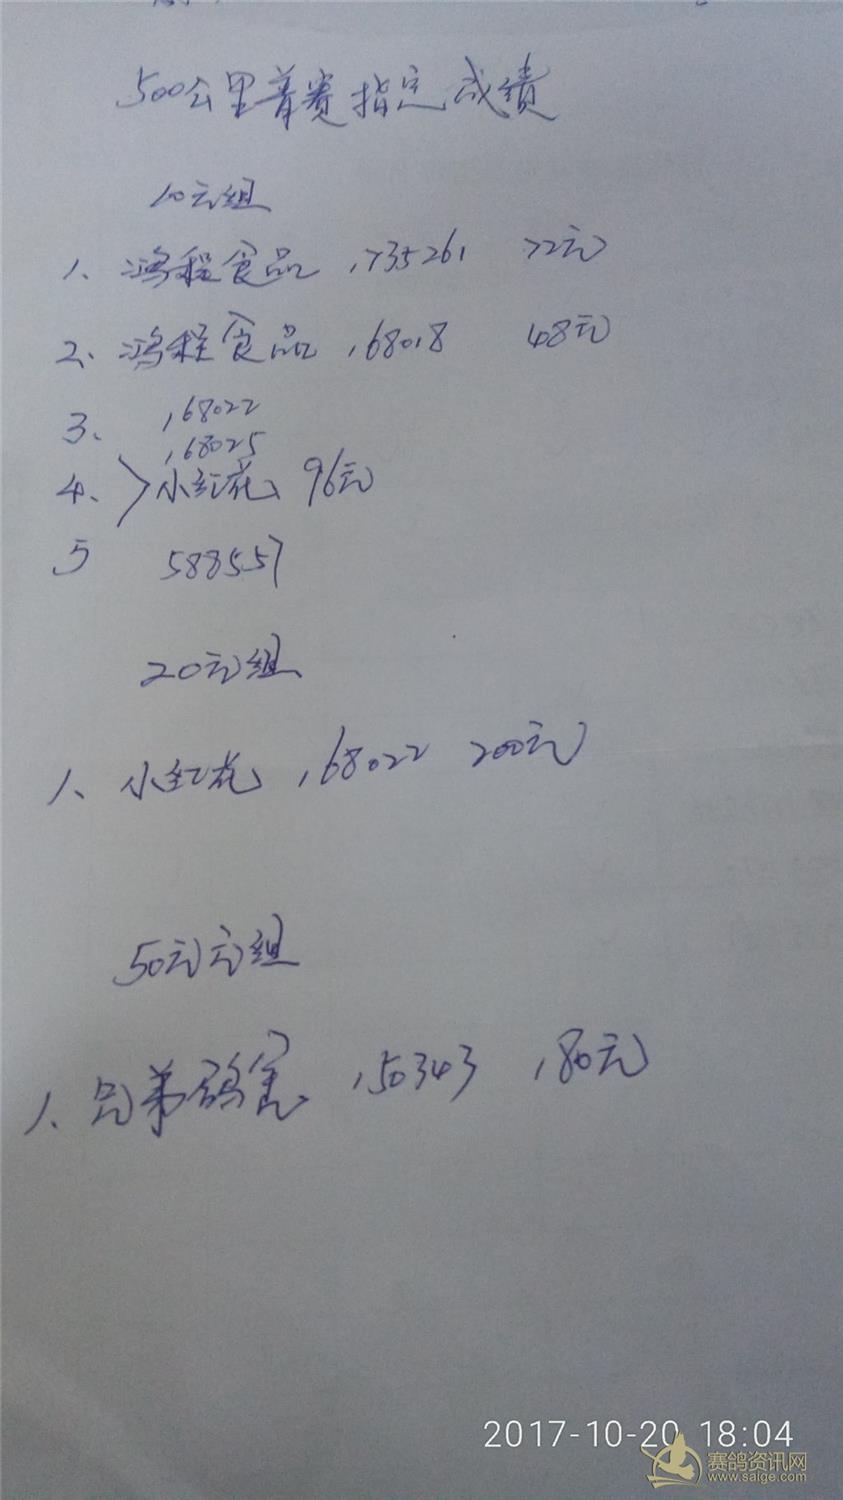 500公里普赛指定成绩
10元组
1、鸿程食品 1735261 72元
2、鸿程食品 168018 48元
3、 168022
168025
4、 >小红花 96元
5 588557
20元组
1、小红花 168022 200元
50元元组
1、兄弟鸽舍 150343 180元
2017-10-20 18:04
赛鸽资讯网
www.saige.com